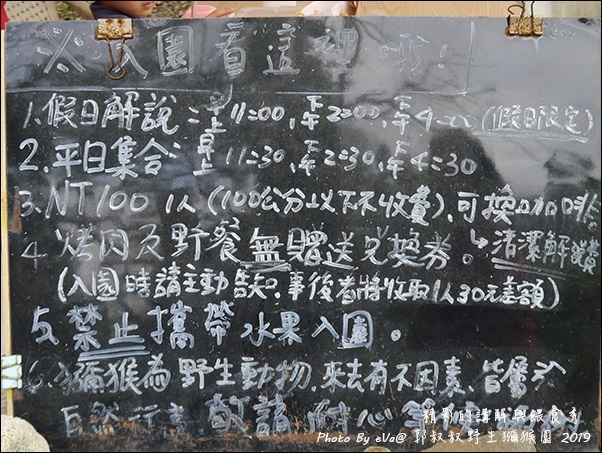 ※入園看這裡哦!
1.假日解說:早上11:00,下午2:00,下午4:00(假日限定)
2.平日集合:早上11:30,下午2:30,下午4:30
3.NT100 1人(100公分以下不收費),可換咖啡
4.烤肉及野餐無贈送兌換券。↳清潔解說費
(入園時請主動告知,事後者將收取1人30元差額)
5.禁止攜帶水果入園。
6.獼猴為野生動物,來去有不因素,皆屬於
自然行為 敬請耐心等
精彩的講解與餵食秀
Photo By eVa@ 郭叔叔野生獼猴園 2019